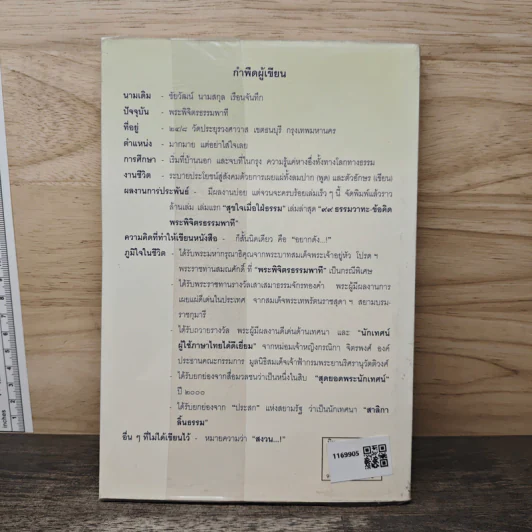 กำพืดผู้เขียน
นามเดิม - ชัยวัฒน์ นามสกุล เรือนจันทึก
ปัจจุบัน - พระพิจิตรธรรมพาที
ที่อยู่ - ๒๔/๘ วัดประยุรวงศาวาส เขตธนบุรี กรุงเทพมหานคร
ตำแหน่ง - มากมาย แต่อย่าใส่ใจเลย
การศึกษา - เริ่มที่บ้านนอก และจบที่ในกรุง ความรู้แค่หางอึ่งทั้งทางโลกทางธรรม
งานชีวิต - ระบายประโยชน์สู่สังคมด้วยการเผยแผ่ทั้งลมปาก (พูด) และตัวอักษร (เขียน)
ผลงานการประพันธ์ - มีผลงานบ่อย แต่จวนจะครบร้อยเล่มเร็ว ๆ นี้ จัดพิมพ์แล้วราว
ล้านเล่ม เล่มแรก "สุขใจเมื่อใฝ่ธรรม" เล่มล่าสุด "๙๙ ธรรมวาทะ-ข้อคิด
พระพิจิตรธรรมพาที"
ความคิดที่ทำให้เขียนหนังสือ - กี๋สั้นนิดเดียว คือ "อยากดัง...!"
ภูมิใจในชีวิต - ได้รับพระมหากรุณาธิคุณจากพระบาทสมเด็จพระเจ้าอยู่หัว โปรด ฯ
พระราชทานสมณศักดิ์ ที่ "พระพิจิตรธรรมพาที" เป็นกรณีพิเศษ
- ได้รับพระราชทานรางวัลเสาเสมาธรรมจักรทองคำ พระผู้มีผลงานการ
เผยแผ่ดีเด่นในประเทศ จากสมเด็จพระเทพรัตนราชสุดา ฯ สยามบรม-
ราชกุมารี
- ได้รับถวายรางวัล พระผู้มีผลงานดีเด่นด้านเทศนา และ "นักเทศน์
ผู้ใช้ภาษาไทยได้ดีเยี่ยม" จากหม่อมเจ้าหญิงกรณิกา จิตรพงศ์ องค์
ประธานคณะกรรมการ มูลนิธิสมเด็จเจ้าฟ้ากรมพระยานริศรานุวัดติวงศ์
- ได้รับยกย่องจากสื่อมวลชนว่าเป็นหนึ่งในสิบ "สุดยอดพระนักเทศน์"
ปี ๒๐๐๐
- ได้รับยกย่องจาก "ประสก" แห่งสยามรัฐ ว่าเป็นนักเทศนา "สาลิกา
ลิ้นธรรม"
อื่น ๆ ที่ไม่ได้เขียนไว้ - หมายความว่า "สงวน...!"
1169905